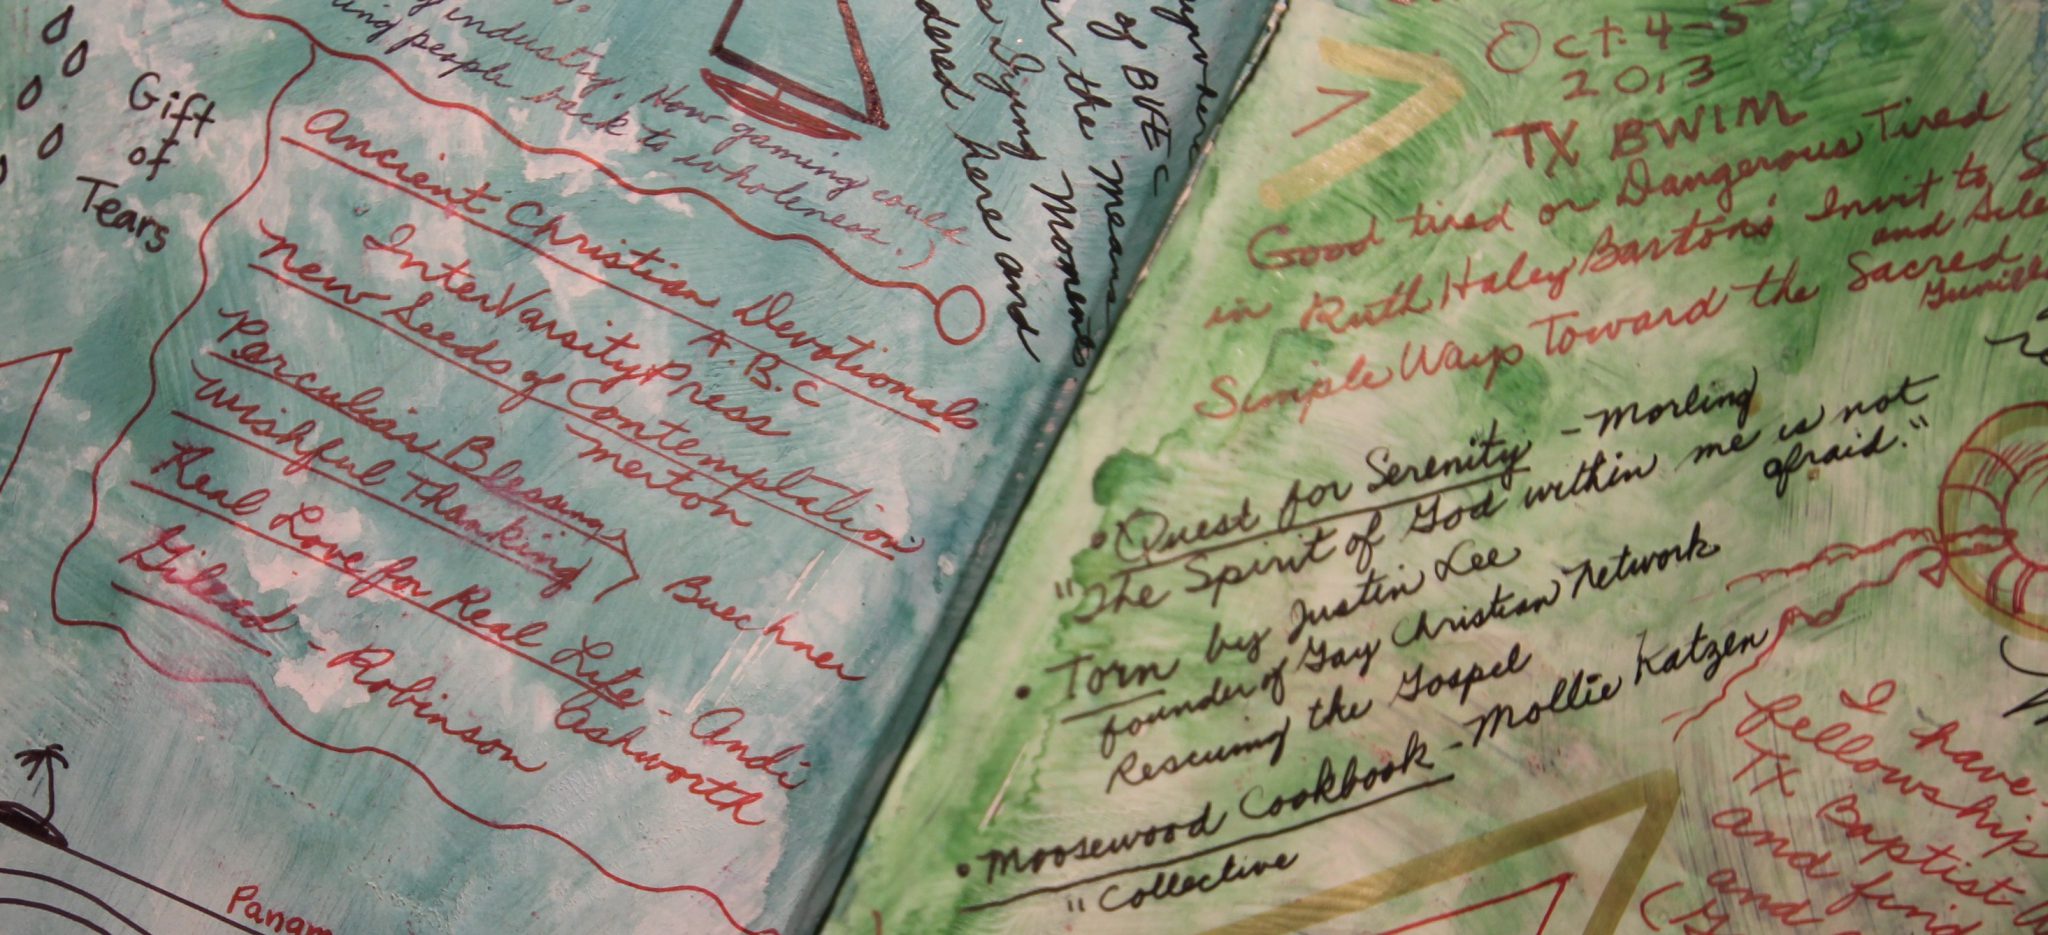 industry. How gaming could
people back to wholeness.)
Gift
of
Tears
Ancient Christian Devotionals
A.B.C
InterVarsity Press
New Seeds of Contemplation
Merton
Perculiar Blessings
Wishful Thanking
Buechner
Real Love for Real Life - Andi
Ashworth
Gilead - Robinson
Panam
of BYEC
the Means
Dying Moments
here and
Oct. 4-5
2013
TX BWIM
Good tired or Dangerous Tired
in Ruth Haley Barton's Invit to
and
Simple Ways Toward the Sacred
• Quest for Serenity - Morling
"The Spirit of God within me is not
afraid."
• Torn by Justin Lee
founder of Gay Christian Network
Rescuing the Gospel
• Moosewood Cookbook - Mollie Katzen
" Collective
I have
fellowship
TX Baptist
and find
and